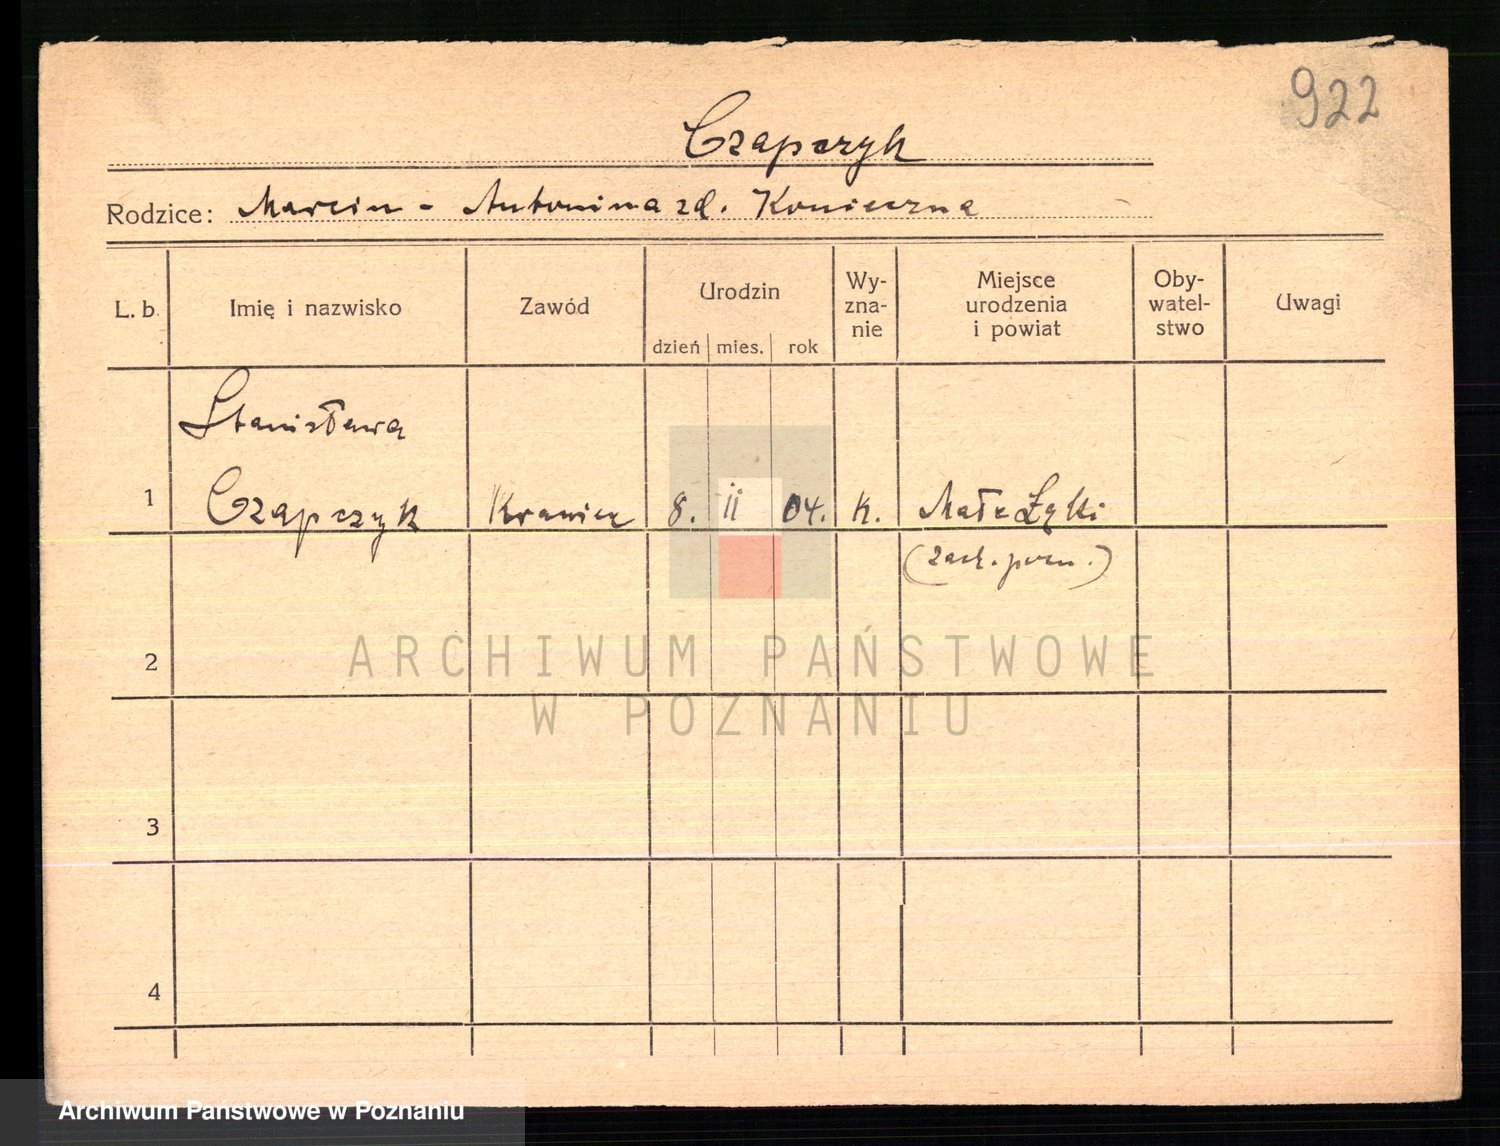 922
Czapczyk
Rodzice: Marcin - Antonina zd. Konieczna
L. b. Imię i nazwisko Zawód Urodzin dzień mies. rok Wy-zna-nie Miejsce urodzenia i powiat Oby-watel-stwo Uwagi
Stanisława
1 Czapczyk Krawiec 8. ii 04. k. Małe Łąki
(zach. pom.)
2
ARCHIWUM PAŃSTWOWE
W POZNANIU
3
4
Archiwum Państwowe w Poznaniu